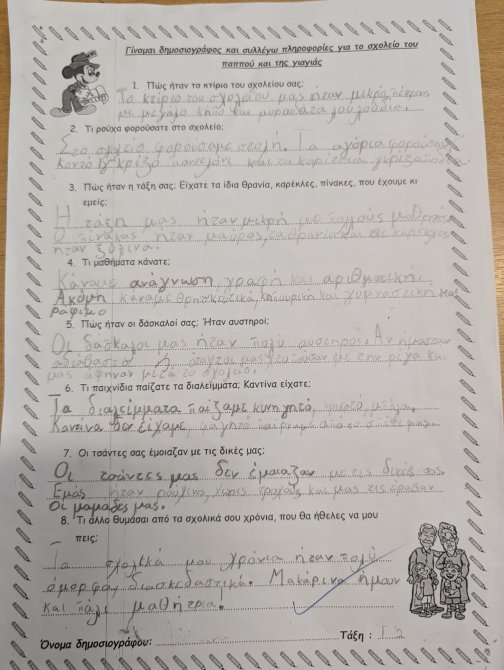 Γίνομαι δημοσιογράφος και συλλέγω πληροφορίες για το σχολείο του
παππού και της γιαγιάς
1. Πώς ήταν το κτίριο του σχολείου σας;
Το κτίριο του σχολείου μας ήταν μικρό, πέτρινο
με μεγάλο κήπο και μυρωδάτα λουλούδια.
2. Τι ρούχα φορούσατε στο σχολείο;
Στο σχολείο φορούσαμε στολή. Τα αγόρια φορούσαν
κοντό γκρίζο παντελόνι και τα κορίτσια γκρίζα
3. Πώς ήταν η τάξη σας; Είχατε τα ίδια θρανία, καρέκλες, πίνακες, που έχουμε κι
εμείς;
Η τάξη μας ήταν μικρή με πολλούς μαθητές.
Ο πίνακας ήταν μαύρος, τα θρανία και οι καρέκλες
ήταν ξύλινα.
4. Τι μαθήματα κάνατε;
Κάναμε ανάγνωση, γραφή και αριθμητική.
Ακόμη κάναμε θρησκευτικά, κηπουρική και γυμναστική και
ράψιμο
5. Πώς ήταν οι δάσκαλοί σας; Ήταν αυστηροί;
Οι δάσκαλοι μας ήταν πολύ αυστηροί. Αν ήμασταν
αδιάβαστοι ή άτακτοι μας κτυπούσαν με την ρίγα και
μας άφηναν μετά το σχολείο.
6. Τι παιχνίδια παίζατε τα διαλείμματα; Καντίνα είχατε;
Τα διαλείμματα παίζαμε κυνηγητό, κρυφτό,
Καντίνα δεν είχαμε, φαγητό παίρναμε από το σπίτι μας.
7. Οι τσάντες σας έμοιαζαν με τις δικές μας;
Οι τσάντες μας δεν έμοιαζαν με τις δικές σας.
Εμάς ήταν ρούχινα, χωρίς τροχούς και μας τις έραβαν
Οι μαμάδες μας.
8. Τι άλλο θυμάσαι από τα σχολικά σου χρόνια, που θα ήθελες να μου
πεις;
Τα σχολικά μου χρόνια ήταν πολύ
όμορφα, διασκεδαστικά. Μακάρι να ήμουν
και πάλι μαθήτρια.
Όνομα δημοσιογράφου:
Τάξη :